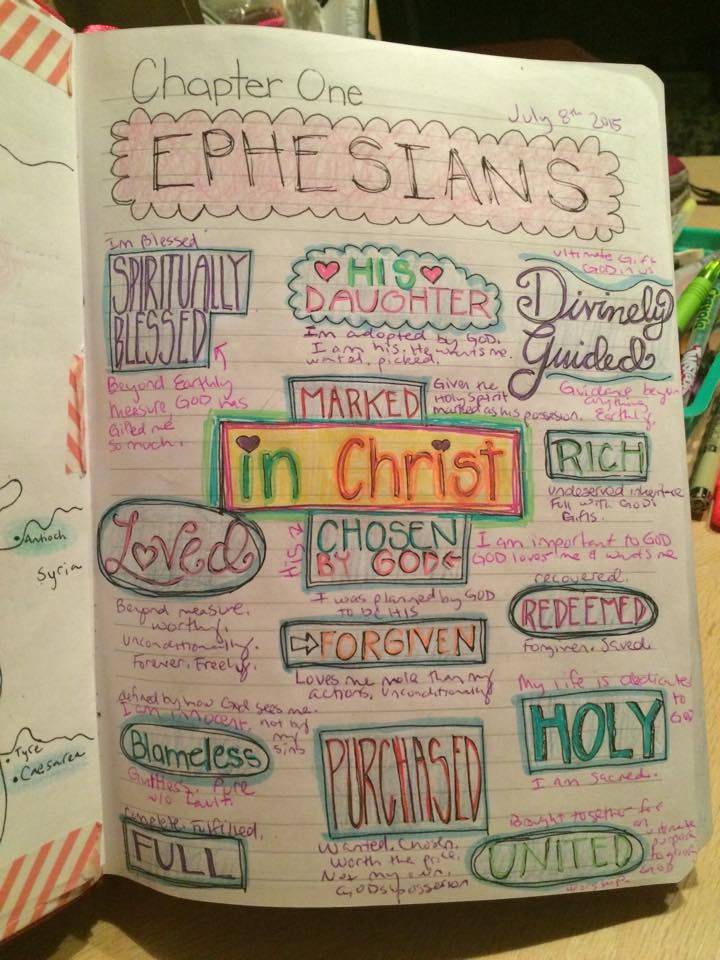 Chapter One
July 8th 2015
EPHESIANS
Im Blessed
SPIRITUALLY
BLESSED
Beyond Earthly
measure GOD has
Gifted me
so much.
HIS
DAUGHTER
I'm adopted by GOD.
I am his. He wants me.
wanted, picked.
ultimate Gift
GOD in us
Divinely
Guided
Guidance beyond
anything
Earthly.
MARKED
Given the
Holy Spirit
marked as his possesion.
in Christ
RICH
undeserved inheritance
Full with GODs
Gifts.
Loved
Beyond measure.
worthy.
unconditionally.
Forever. Freely.
His
CHOSEN
BY GOD
I was planned by GOD
to be HIS
I am important to GOD
GOD loves me & wants me
recovered.
REDEEMED
Forgiven. Saved.
FORGIVEN
Loves me more than my
actions, unconditionally
defined by how God sees me.
I am innocent, not by
my
sins
Blameless
Guiltless. Pure
w/o fault.
My life is dedicated
to
GOD
HOLY
I am sacred.
PURCHASED
Wanted. Chosen.
Worth the price.
Not my own.
GODs possession
complete. Fulfilled.
FULL
Brought together for
an
ultimate
purpose
to glorify
GOD
UNITED
worship
Antioch
Syria
Tyre
Caesarea
Crayola